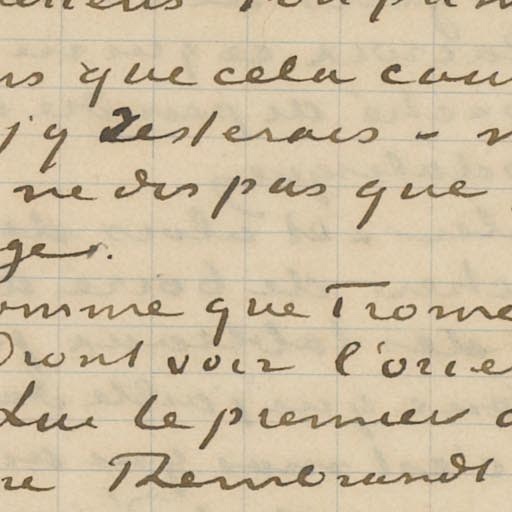 ns que cela
j'y resterais - 
ne dis pas que
ger.
omme que Trome
Dront voir l'orie
Lui le premier
re Rembrandt